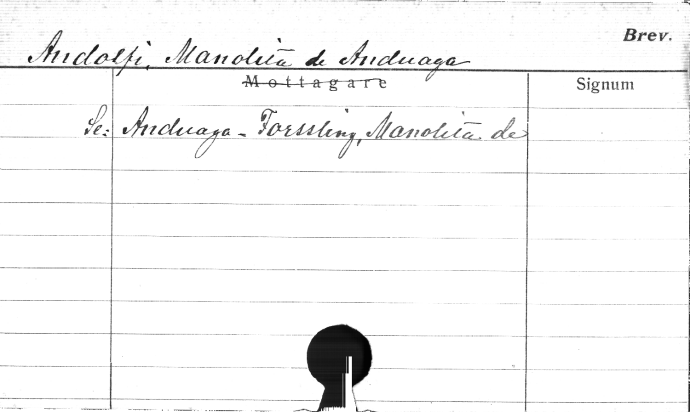 Brev.
Andolfi, Manolita de Anduaga
Mottagare Signum
Se: Anduaga - Forssling, Manolita de